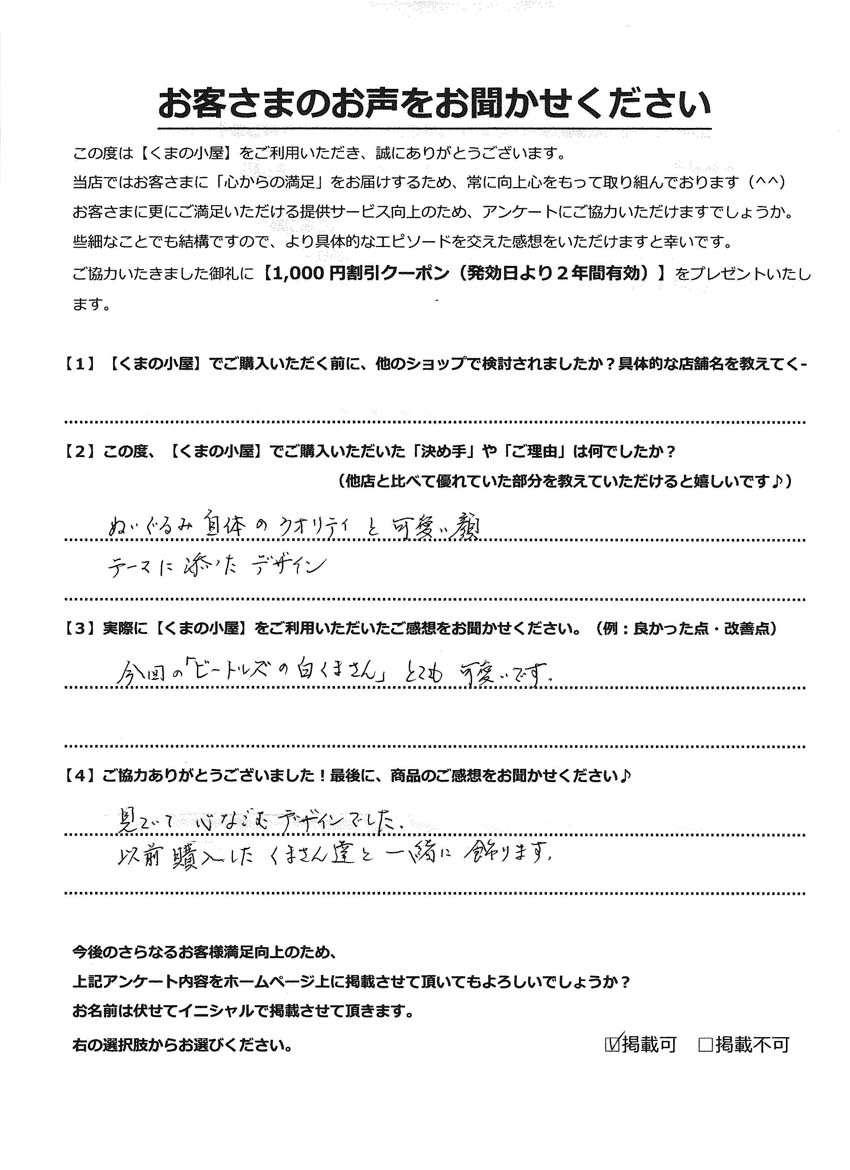 お客さまのお声をお聞かせください
この度は【くまの小屋】をご利用いただき、誠にありがとうございます。
当店ではお客さまに「心からの満足」をお届けするため、常に向上心をもって取り組んでおります（^^）
お客さまに更にご満足いただける提供サービス向上のため、アンケートにご協力いただけますでしょうか。
些細なことでも結構ですので、より具体的なエピソードを交えた感想をいただけますと幸いです。
ご協力いたきました御礼に【1,000 円割引クーポン（発効日より２年間有効）】をプレゼントいたし
ます。
【１】【くまの小屋】でご購入いただく前に、他のショップで検討されましたか？具体的な店舗名を教えてく
【２】この度、【くまの小屋】でご購入いただいた「決め手」や「ご理由」は何でしたか？
（他店と比べて優れていた部分を教えていただけると嬉しいです♪）
ぬいぐるみ自体のクオリティと可愛い顔
テーマに添ったデザイン
【３】実際に【くまの小屋】をご利用いただいたご感想をお聞かせください。（例：良かった点・改善点）
今回の「ビートルズの白くまさん」とても可愛いです.
【４】ご協力ありがとうございました！最後に、商品のご感想をお聞かせください♪
見ていて心なごむデザインでした.
以前購入したくまさん達と一緒に飾ります.
今後のさらなるお客様満足向上のため、
上記アンケート内容をホームページ上に掲載させて頂いてもよろしいでしょうか？
お名前は伏せてイニシャルで掲載させて頂きます。
右の選択肢からお選びください。 ☑掲載可 □掲載不可